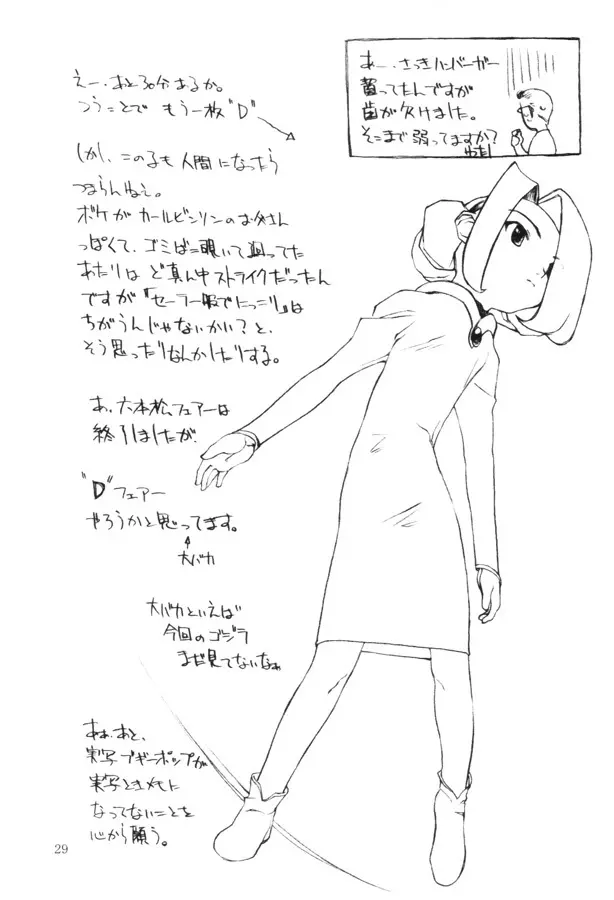 えー、あと30分あるか。
つうことで もう一枚"D"
しかし、この子も人間になったら
つまらんねぇ。
ボケがカールビンソンのお父さん
っぽくて、ゴミばこ覗いて迴ってた
あたりは ど真ん中ストライクだったん
ですが「セーラー服でにっこり」は
ちがうんじゃないかい？と、
そう思ったりなんかしたりする。
あ、六本松フェアーは
終了しましたが、
"D"フェアー
やろうかと思ってます。
大バカ
大バカといえば
今回のゴジラ
まだ見てないなぁ
あぁ、あと、
実写ブギーポップが
実写ときメモに
なってないことを
心から願う。
あー、さっきハンバーガー
買ってたんですが
歯が欠けました。
そこまで弱ってますか？
わたし
29